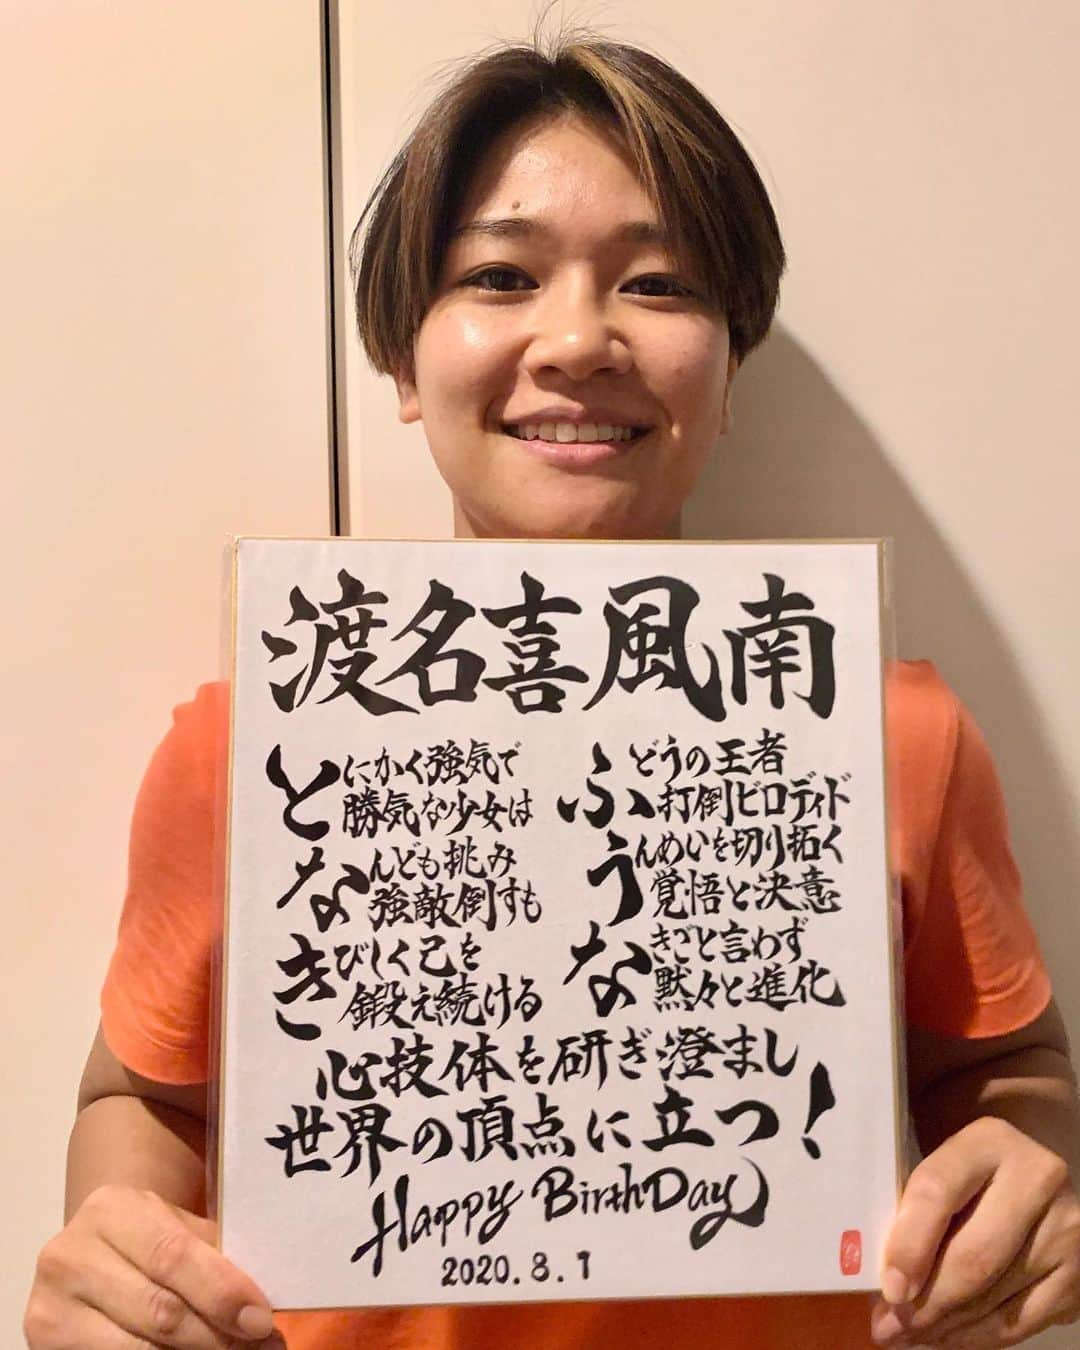 渡名喜風南
とにかく強気で
勝気な少女は
なんども挑み
強敵倒すも
きびしく己を
鍛え続ける
ふどうの王者
打倒ビロディド
うんめいを切り拓く
覚悟と決意
なきごと言わず
黙々と進化
心技体を研ぎ澄まし
世界の頂点に立つ！
Happy BirthDay
2020.8.1